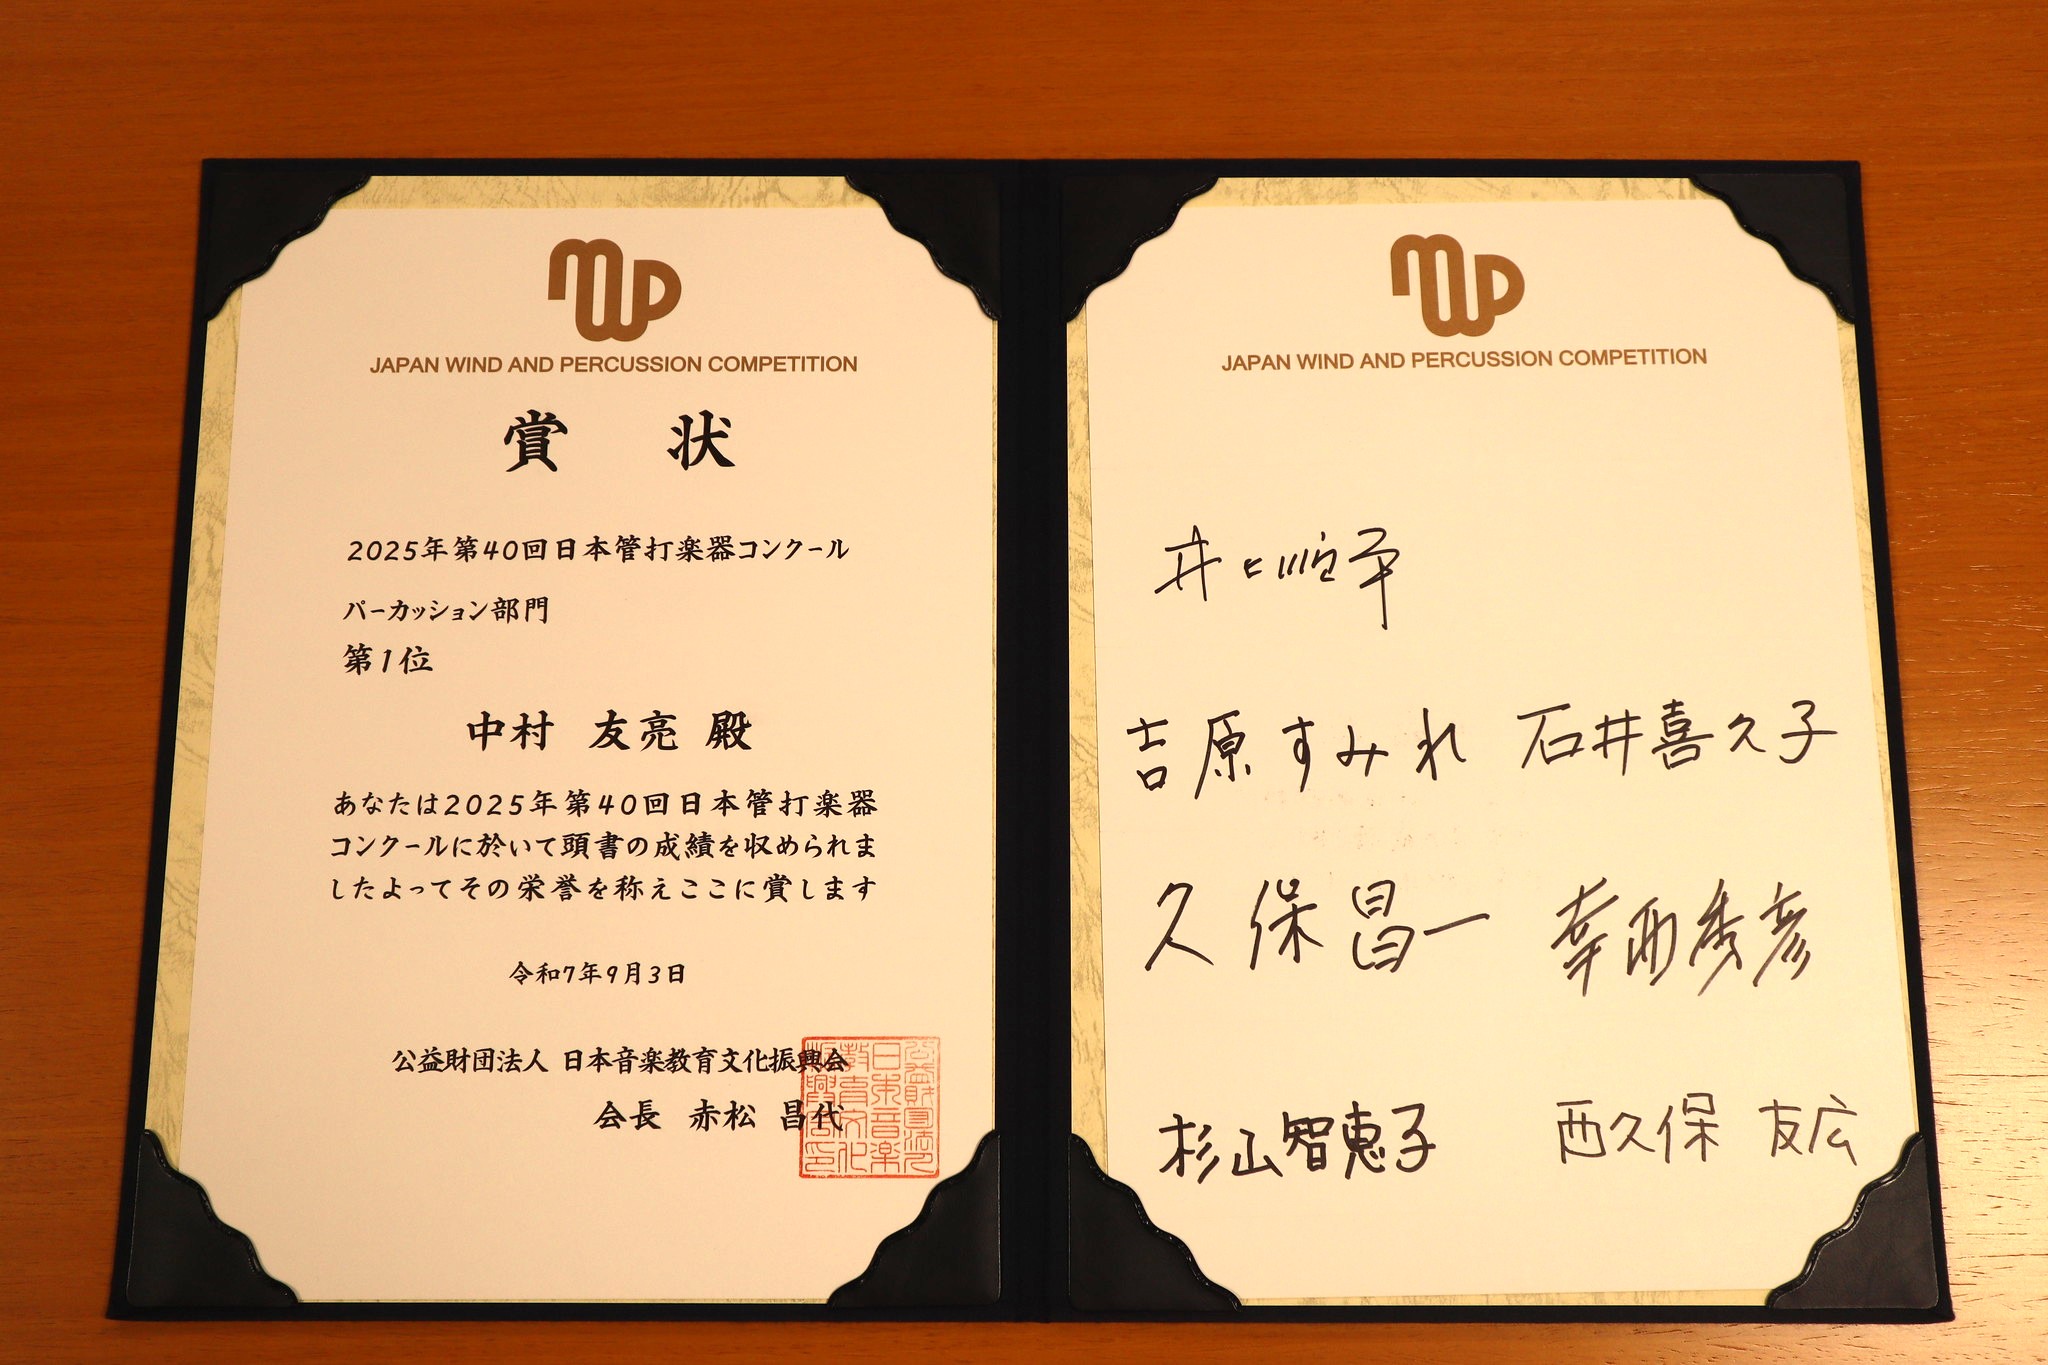 mwp
JAPAN WIND AND PERCUSSION COMPETITION
賞 状
2025年第40回日本管打楽器コンクール
パーカッション部門
第1位
中村 友亮 殿
あなたは2025年第40回日本管打楽器
コンクールに於いて頭書の成績を収められま
したよってその栄誉を称えここに賞します
令和7年9月3日
公益財団法人 日本音楽教育文化振興会
会長 赤松 昌代
mwp
JAPAN WIND AND PERCUSSION COMPETITION
吉原すみれ 石井喜久子
久保昌一 幸西秀彦
杉山智恵子 西久保 友広